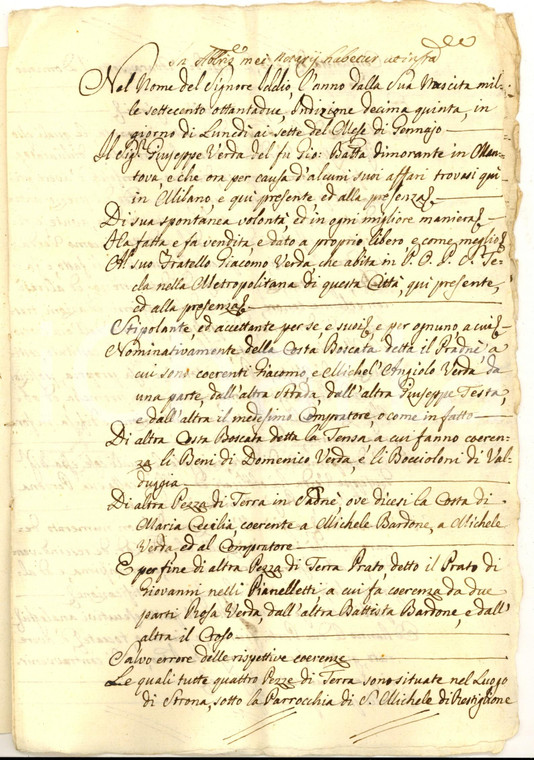 In Abbre mei Notarij habetur ut infra
Nel Nome del Signore Iddio, l'anno dalla Sua Nascita mil-
le settecento ottantadue, Indizione decima quinta, in
giorno di Lunedì ai sette del Mese di Gennajo
Il Sigr Giuseppe Verda del fu Gio: Batta dimorante in Man-
tova, e che ora per causa d'alcuni suoi affari trovasi qui
in Milano, e qui presente ed alla presenza
Di sua spontanea volontà, ed in ogni migliore maniera
Ha fatta e fa vendita e dato a proprio, libero e come meglio
Al suo Fratello Giacomo Verda che abita in P. O. P. S. Te-
cla nella Metropolitana di questa Città, qui presente,
ed alla presenza
Stipolante, ed accettante per se, e suoi, e per ognuno a cui
Nominativamente della Costa Boscata detta il Pradnè, a
cui sono coerenti Giacomo, e Michel'Angiolo Verda da
una parte, dall'altra Strada, dall'altra Giuseppe Testa,
e dall'altra il medesimo Compratore, o come in fatto
Di altra Costa Boscata detta la Tensa a cui fanno coeren-
za li Beni di Domenico Verda, e li Boccioloni di Val-
duggia
Di altra Pezza di Terra in ove dicesi la Costa di
Maria Cecilia coerente a Michele Bardone, a Michele
Verda ed al Compratore
E per fine di altra Pezza di Terra Prato, detto il Prato di
Giovanni nelli Pianelletti, a cui fà coerenza da due
parti Rosa Verda, dall'altra Battista Bardone, e dall'
altra il Croso
Salvo errore delle rispettive coerenze
Le quali tutte quattro Pezze di Terra sono situate nel Luogo
di Strona, sotto la Parrocchia di S. Michele di